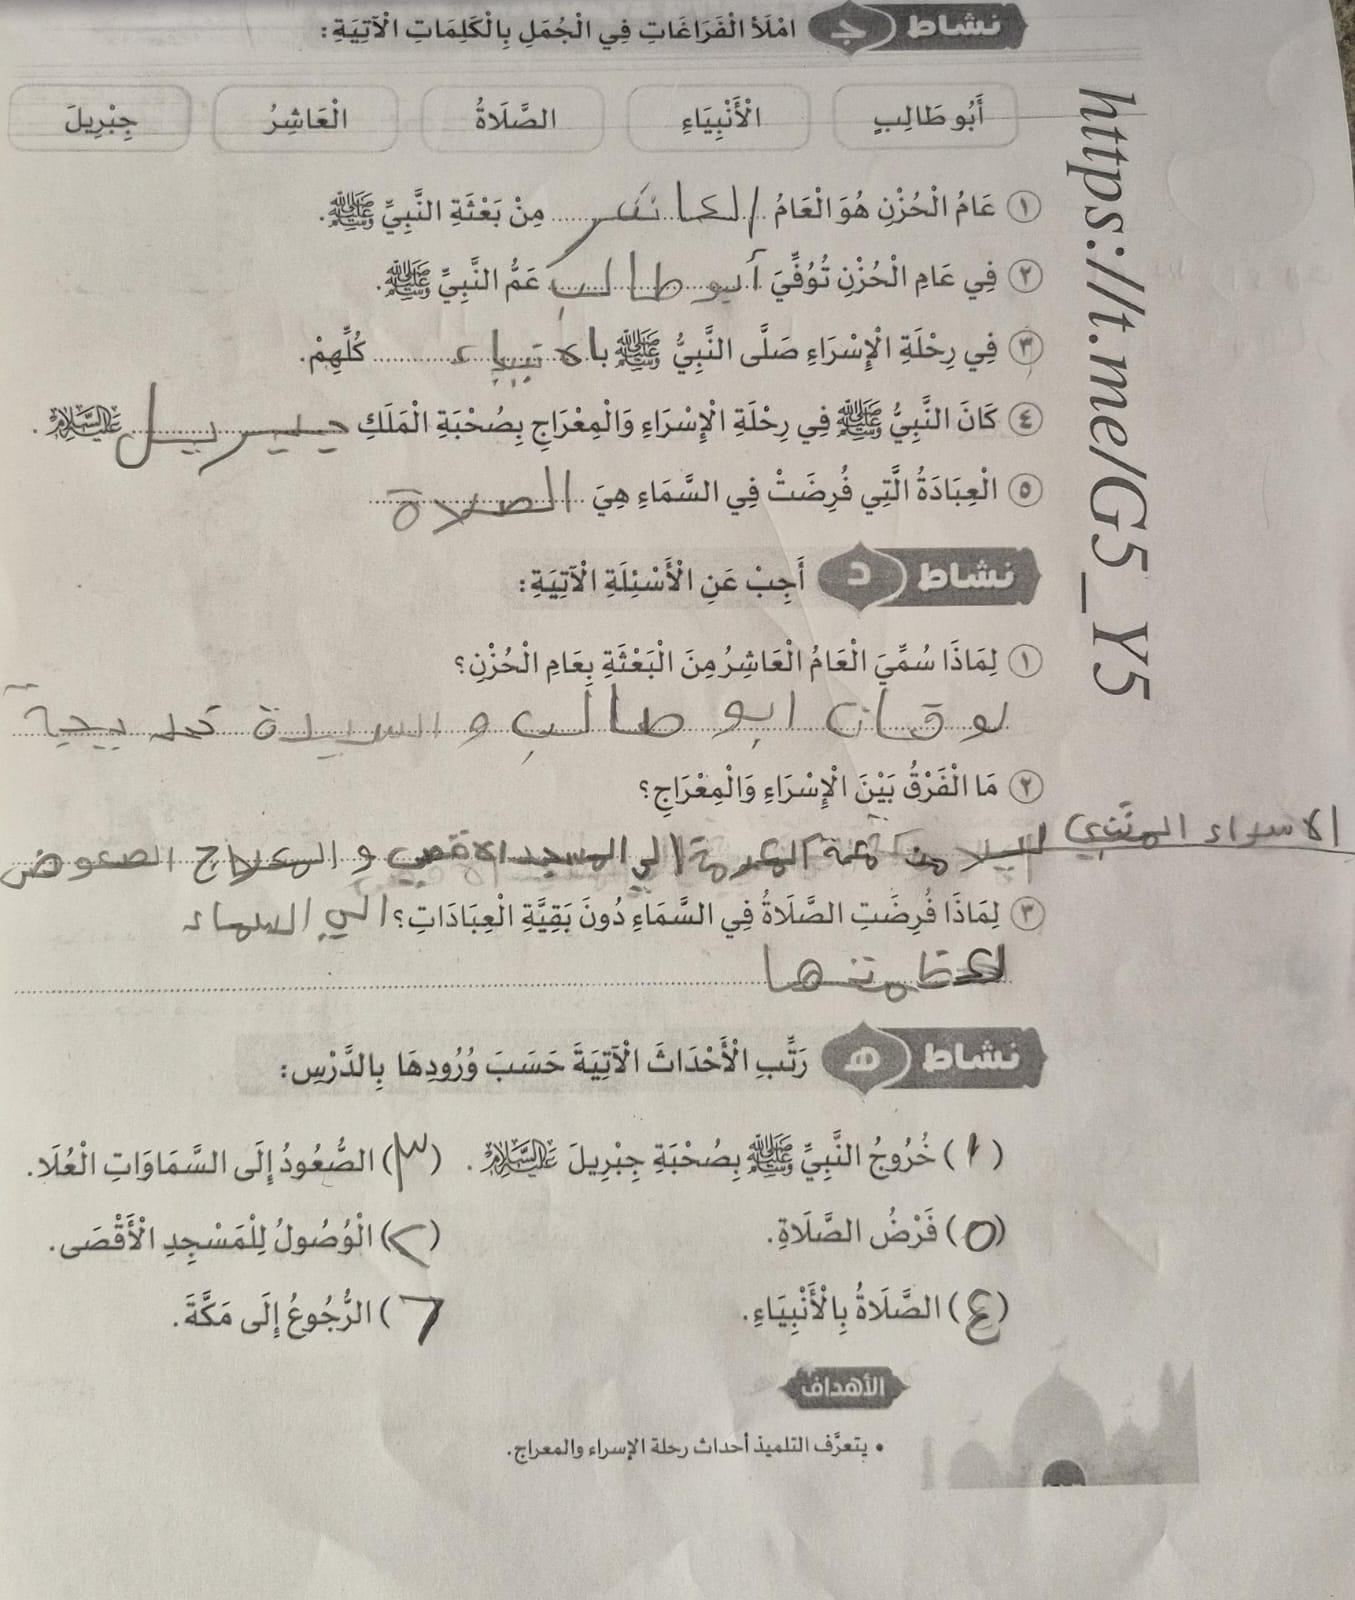 نشاط ج امْلَأِ الْفَرَاغَاتِ فِي الْجُمَلِ بِالْكَلِمَاتِ الْآتِيَةِ:
أَبُو طَالِبٍ الْأَنْبِيَاءِ الصَّلَاةُ الْعَاشِرُ جِبْرِيلَ
https://t.me/G5_Y5
١ عَامُ الْحُزْنِ هُوَ الْعَامُ العاشر مِنْ بَعْثَةِ النَّبِيِّ ﷺ.
٢ فِي عَامِ الْحُزْنِ تُوُفِّيَ أبو طالب عَمُّ النَّبِيِّ ﷺ.
٣ فِي رِحْلَةِ الْإِسْرَاءِ صَلَّى النَّبِيُّ ﷺ بالانبياء كُلِّهِمْ.
٤ كَانَ النَّبِيُّ ﷺ فِي رِحْلَةِ الْإِسْرَاءِ وَالْمِعْرَاجِ بِصُحْبَةِ الْمَلَكِ جبريل عليه السلام.
٥ الْعِبَادَةُ الَّتِي فُرِضَتْ فِي السَّمَاءِ هِيَ الصلاة
نشاط د أَجِبْ عَنِ الْأَسْئِلَةِ الْآتِيَةِ:
١ لِمَاذَا سُمِّيَ الْعَامُ الْعَاشِرُ مِنَ الْبَعْثَةِ بِعَامِ الْحُزْنِ؟
ابو طالب و السيدة
٢ مَا الْفَرْقُ بَيْنَ الْإِسْرَاءِ وَالْمِعْرَاجِ؟
الاسراء ليلا من المكرمة الي المسجد الاقصي و المعراج
٣ لِمَاذَا فُرِضَتِ الصَّلَاةُ فِي السَّمَاءِ دُونَ بَقِيَّةِ الْعِبَادَاتِ؟ الي السماء
نشاط هـ رَتِّبِ الْأَحْدَاثَ الْآتِيَةَ حَسَبَ وُرُودِهَا بِالدَّرْسِ:
(١) خُرُوجُ النَّبِيِّ ﷺ بِصُحْبَةِ جِبْرِيلَ عليه السلام. (٣) الصُّعُودُ إِلَى السَّمَاوَاتِ الْعُلَا.
(٥) فَرْضُ الصَّلَاةِ. (٢) الْوُصُولُ لِلْمَسْجِدِ الْأَقْصَى.
(٤) الصَّلَاةُ بِالْأَنْبِيَاءِ. (٦) الرُّجُوعُ إِلَى مَكَّةَ.
الأهداف
• يتعرَّف التلميذ أحداث رحلة الإسراء والمعراج.